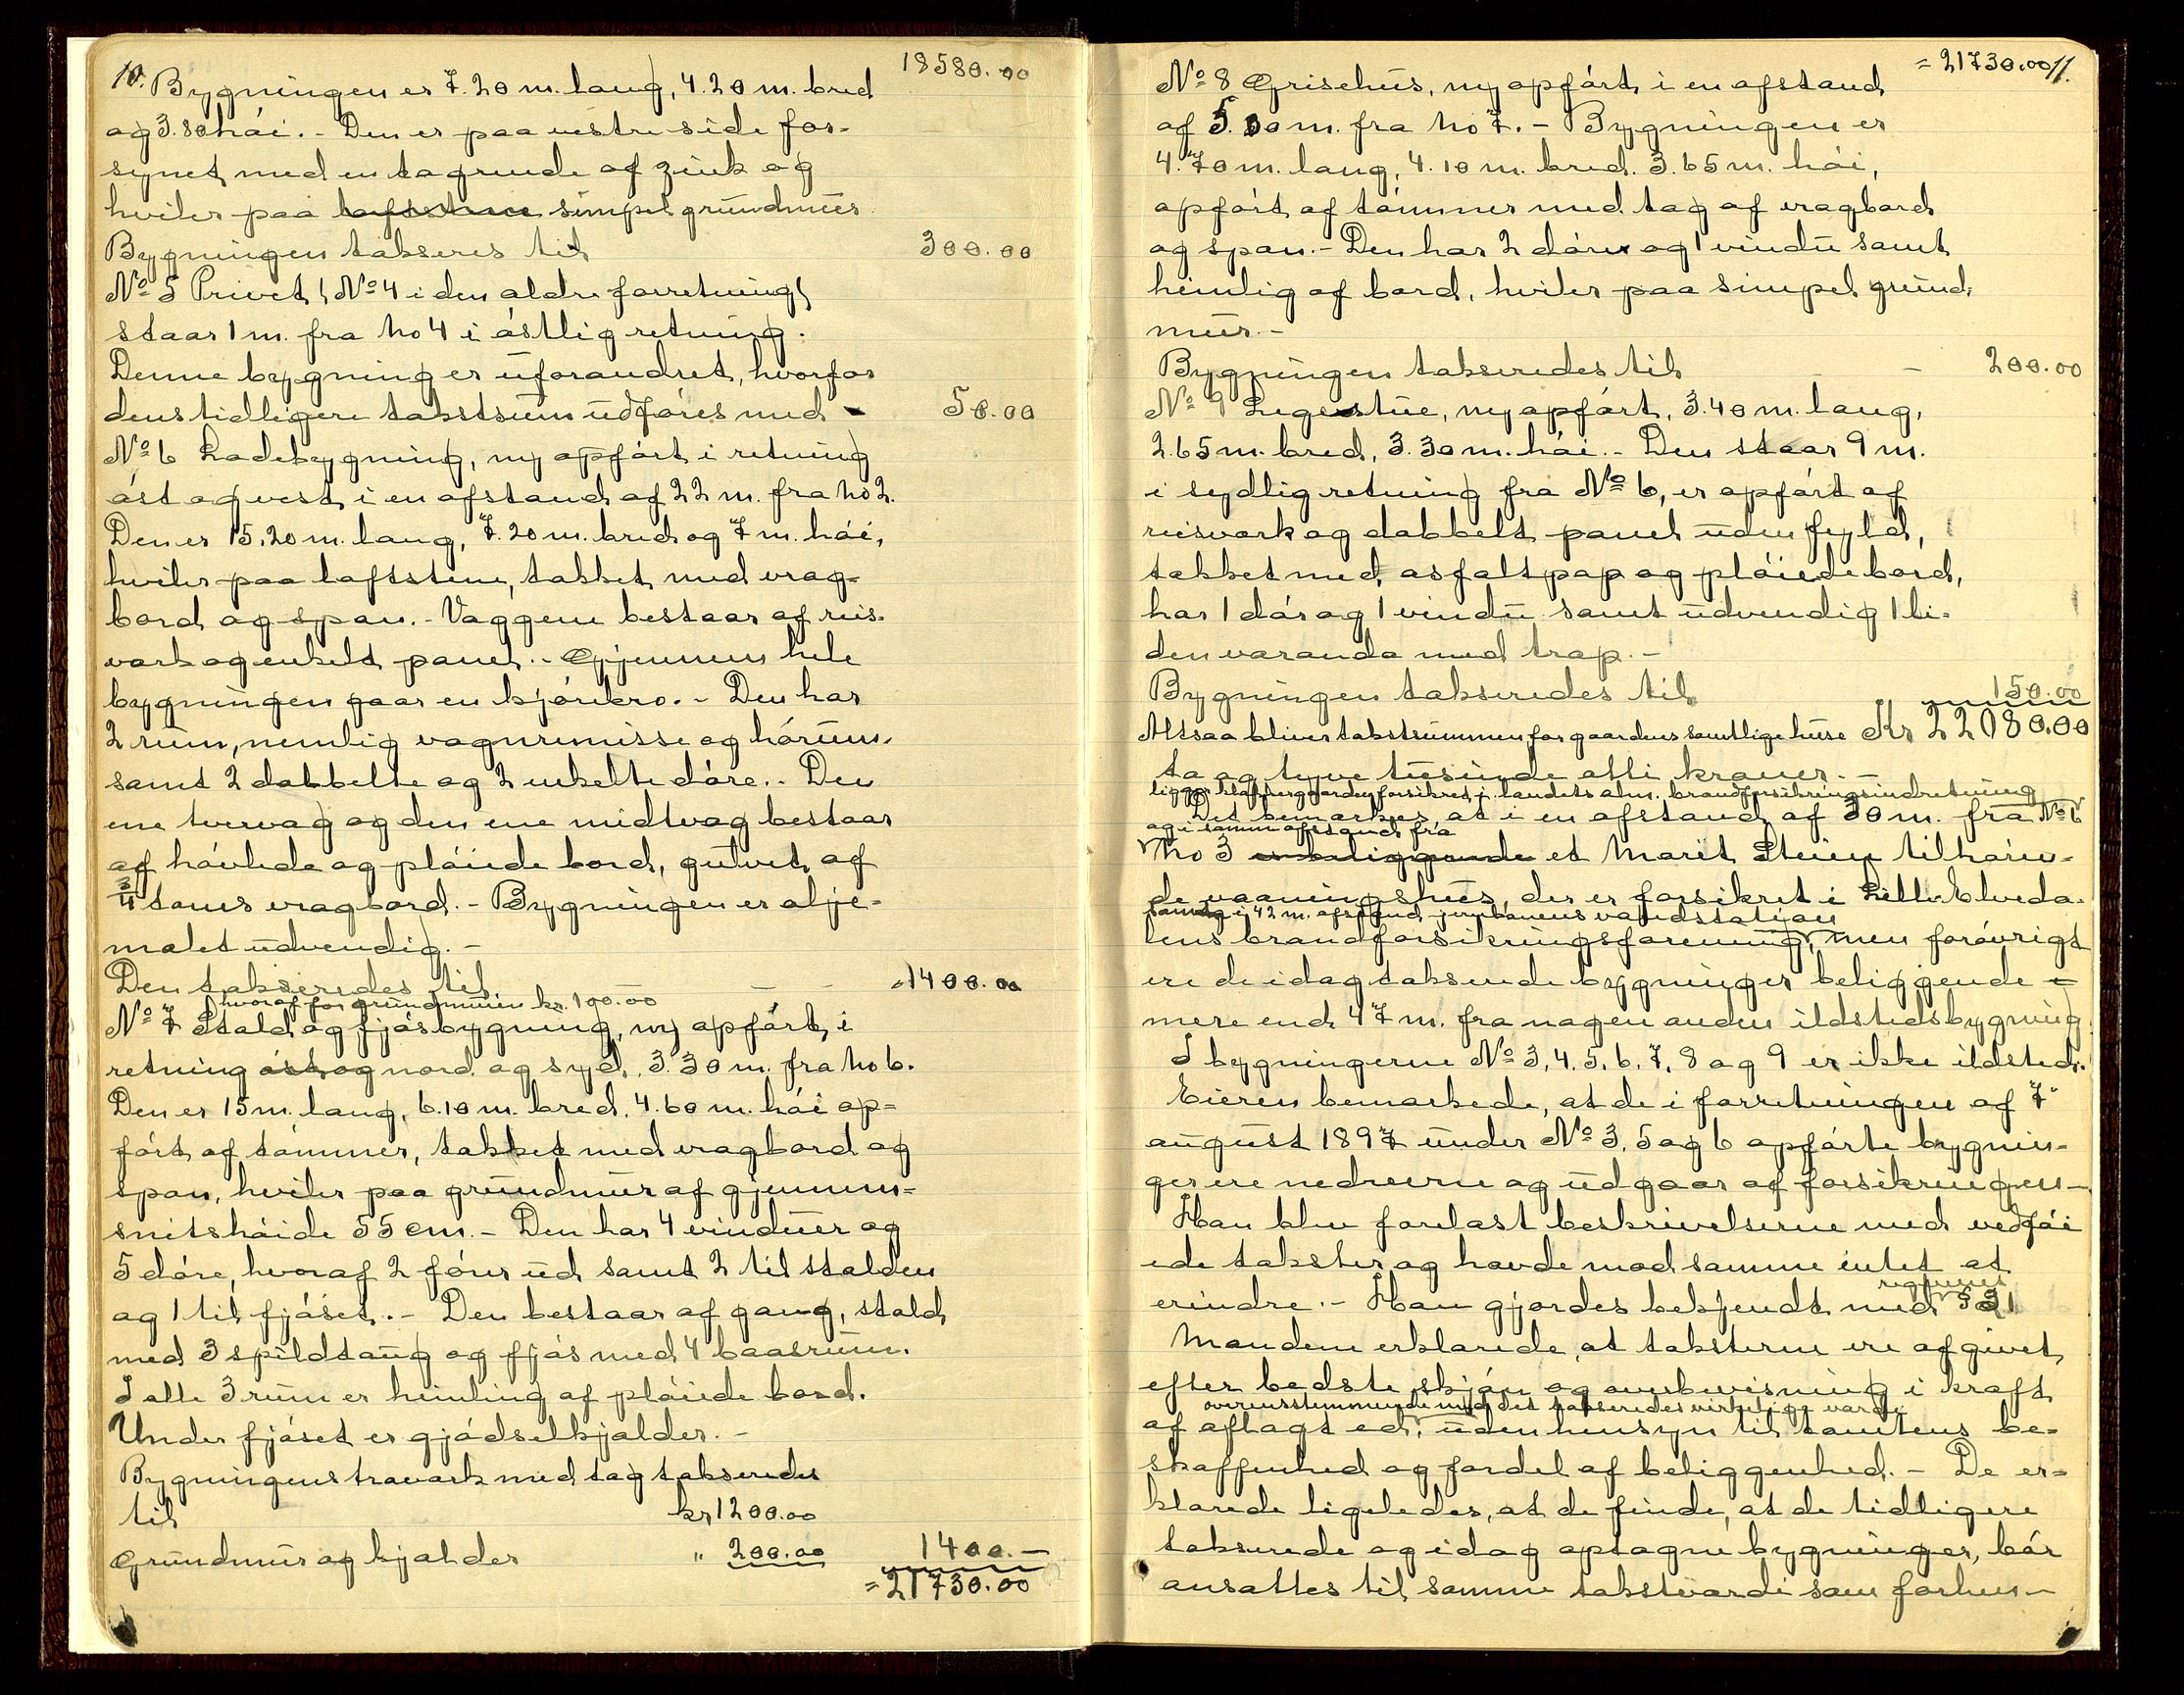 10. 18580.00
Bygningen er 7.20 m. lang, 4.20 m. bred
og 3.80 høi. - Den er paa vestre side for-
synet med en tagrende af zink og
hviler paa loftstene simpel grundmur
Bygningen takseres til 300.00
No 5 Privet (No 4 i den ældre forretning)
staar 1 m. fra No 4 i østlig retning.
Denne bygning er uforandret, hvorfor
dens tidligere takstsum udføres med - 50.00
No 6 Ladebygning, ny opført i retning
øst og vest i en afstand af 22 m. fra No 2.
Den er 15.20 m. lang, 7.20 m. bred og 7 m. høi,
hviler paa loftstene, tækket med vrag-
bord og spon. - Væggene bestaar af reis-
værk og enkelt panel. - Gjennem hele
bygningen gaar en kjørebro. - Den har
2 rum, nemlig vognremisse og hørum
samt 2 dobbelte og 2 enkelte døre. - Den
ene tvervæg og den ene midtvæg bestaar
af høvlede og pløiede bord, gulvet af
3/4 toms vragbord. - Bygningen er olje-
malet udvendig. -
Den takseredes til - - - 1400.00
hvoraf for grundmuren kr. 100.00
No 7 Stald og fjøsbygning, ny opført, i
retning øst og nord og syd, 3.30 m. fra No 6.
Den er 15 m. lang, 6.10 m. bred, 4.60 m. høi op-
ført af tømmer, tækket med vragbord og
spon, hviler paa grundmur af gjennem-
snitshøide 55 cm. - Den har 4 vinduer og
5 døre, hvoraf 2 fører ud samt 2 til stalden
og 1 til fjøset. - Den bestaar af gang, stald
med 3 spildtaug og fjøs med 4 baasrum.
I alle 3 rum er himling af pløiede bord.
Under fjøset er gjødselkjælder. -
Bygningens træværk med tag takseredes
til kr 1200.00
Grundmur og kjælder " 200.00 1400.-
= 21730.00
= 21730.00 11.
No 8 Grisehus, ny opført, i en afstand
af 5.00 m. fra No 7. - Bygningen er
4.70 m. lang, 4.10 m. bred. 3.65 m. høi,
opført af tømmer med tag af vragbord
og spon. - Den har 2 døre og 1 vindu samt
himlig af bord, hviler paa simpel grund-
mur. -
Bygningen takseredes til - - 200.00
No 9 Legestue, ny opført, 3.40 m. lang,
2.65 m. bred, 3.30 m. høi. - Den staar 9 m.
i sydlig retning fra No 6, er opført af
reisværk og dobbelt panel uden fyld,
tækket med asfaltpap og pløiede bord,
har 1 dør og 1 vindu samt udvendig 1 li-
den varanda med trap. -
Bygningen takseredes til 150.00
Altsaa bliver takstsummen for gaardens samtlige huse Kr 22080.00
to og tyve tusinde otti kroner. -
ligger Klokkergaarden forsikret i landets alm. brandforsikringsindretning
Det bemærkes, at i en afstand af 30 m. fra No 6
og i samme afstand fra
No 3 er beliggende et Marit Steien tilhøren-
de vaaningshus, der er forsikret i Lille Elveda-
samt i 42 m. afstand jernbanens vandstation
lens brandforsikringsforening, men forøvrigt
ere de idag takserede bygninger beliggende i
mere end 47 m. fra nogen anden ildstedsbygning
I bygningerne No 3, 4. 5. 6. 7, 8 og 9 er ikke ildsted.
Eieren bemærkede, at de i forretningen af 7"
august 1897 under No 3, 5 og 6 opførte bygnin-
ger ere nedrevne og udgaar af forsikringen -
Han blev forelæst beskrivelserne med vedføi
ede takster og havde mod samme intet at
reglernes
erindre. - Han gjordes bekjendt med § 21
Mændene erklærede, at taksterne ere afgivet
efter bedste skjøn og overbevisning i kraft
overensstemmende med det takseredes virkelige værdi
af aflagt ed, uden hensyn til tomtens be-
skaffenhed og fordel af beliggenhed. - De er-
klærede ligeledes, at de finde, at de tidligere
takserede og idag optagne bygninger, bør
ansættes til samme takstværdi som forhen -